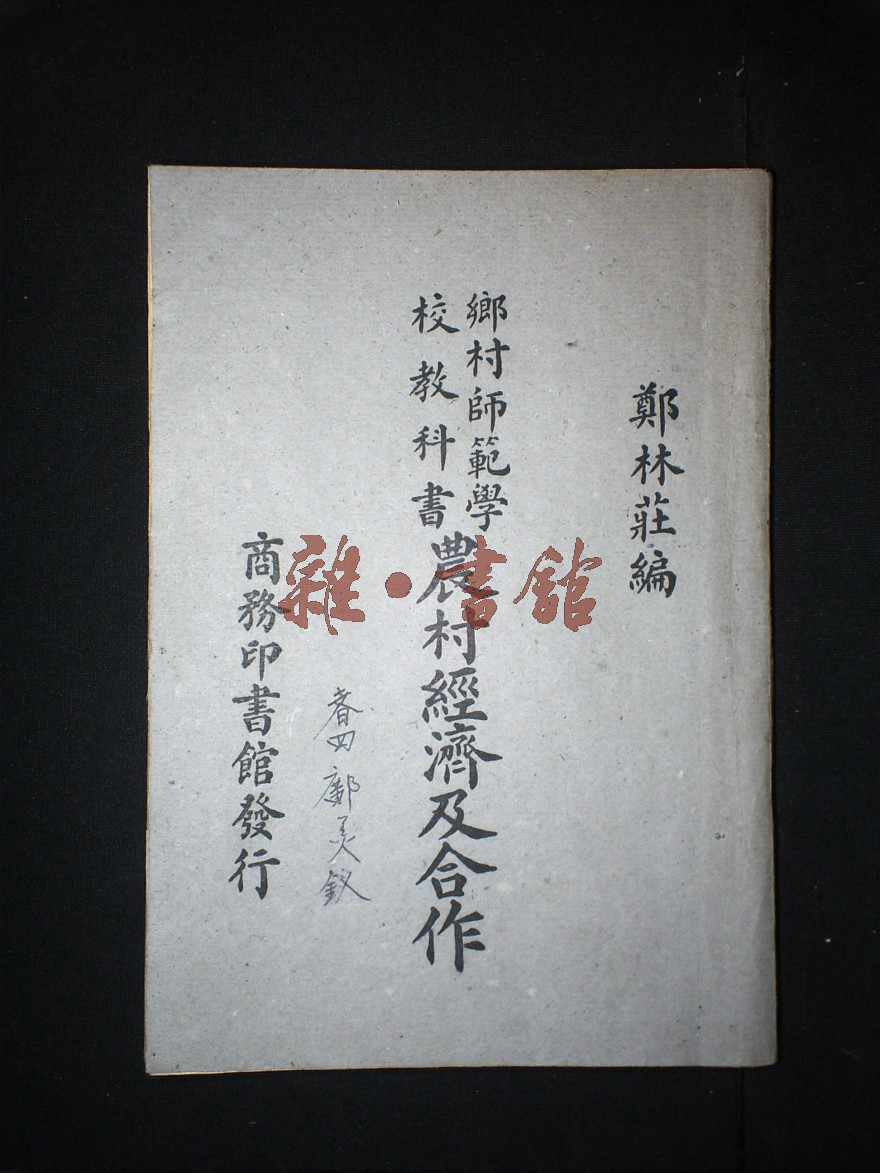 鄭林莊編
鄉村師範學
校教科書
農村經濟及合作
春四 鄺美釵
商務印書館發行
雜·書館